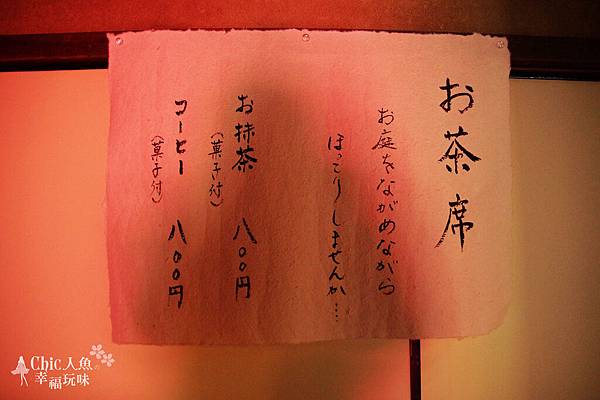 お茶席
お庭をながめながら
ほっこりしませんか…
お抹茶 八〇〇円
(菓子付)
コーヒー 八〇〇円
(菓子付)
Chic人魚の
幸福玩味